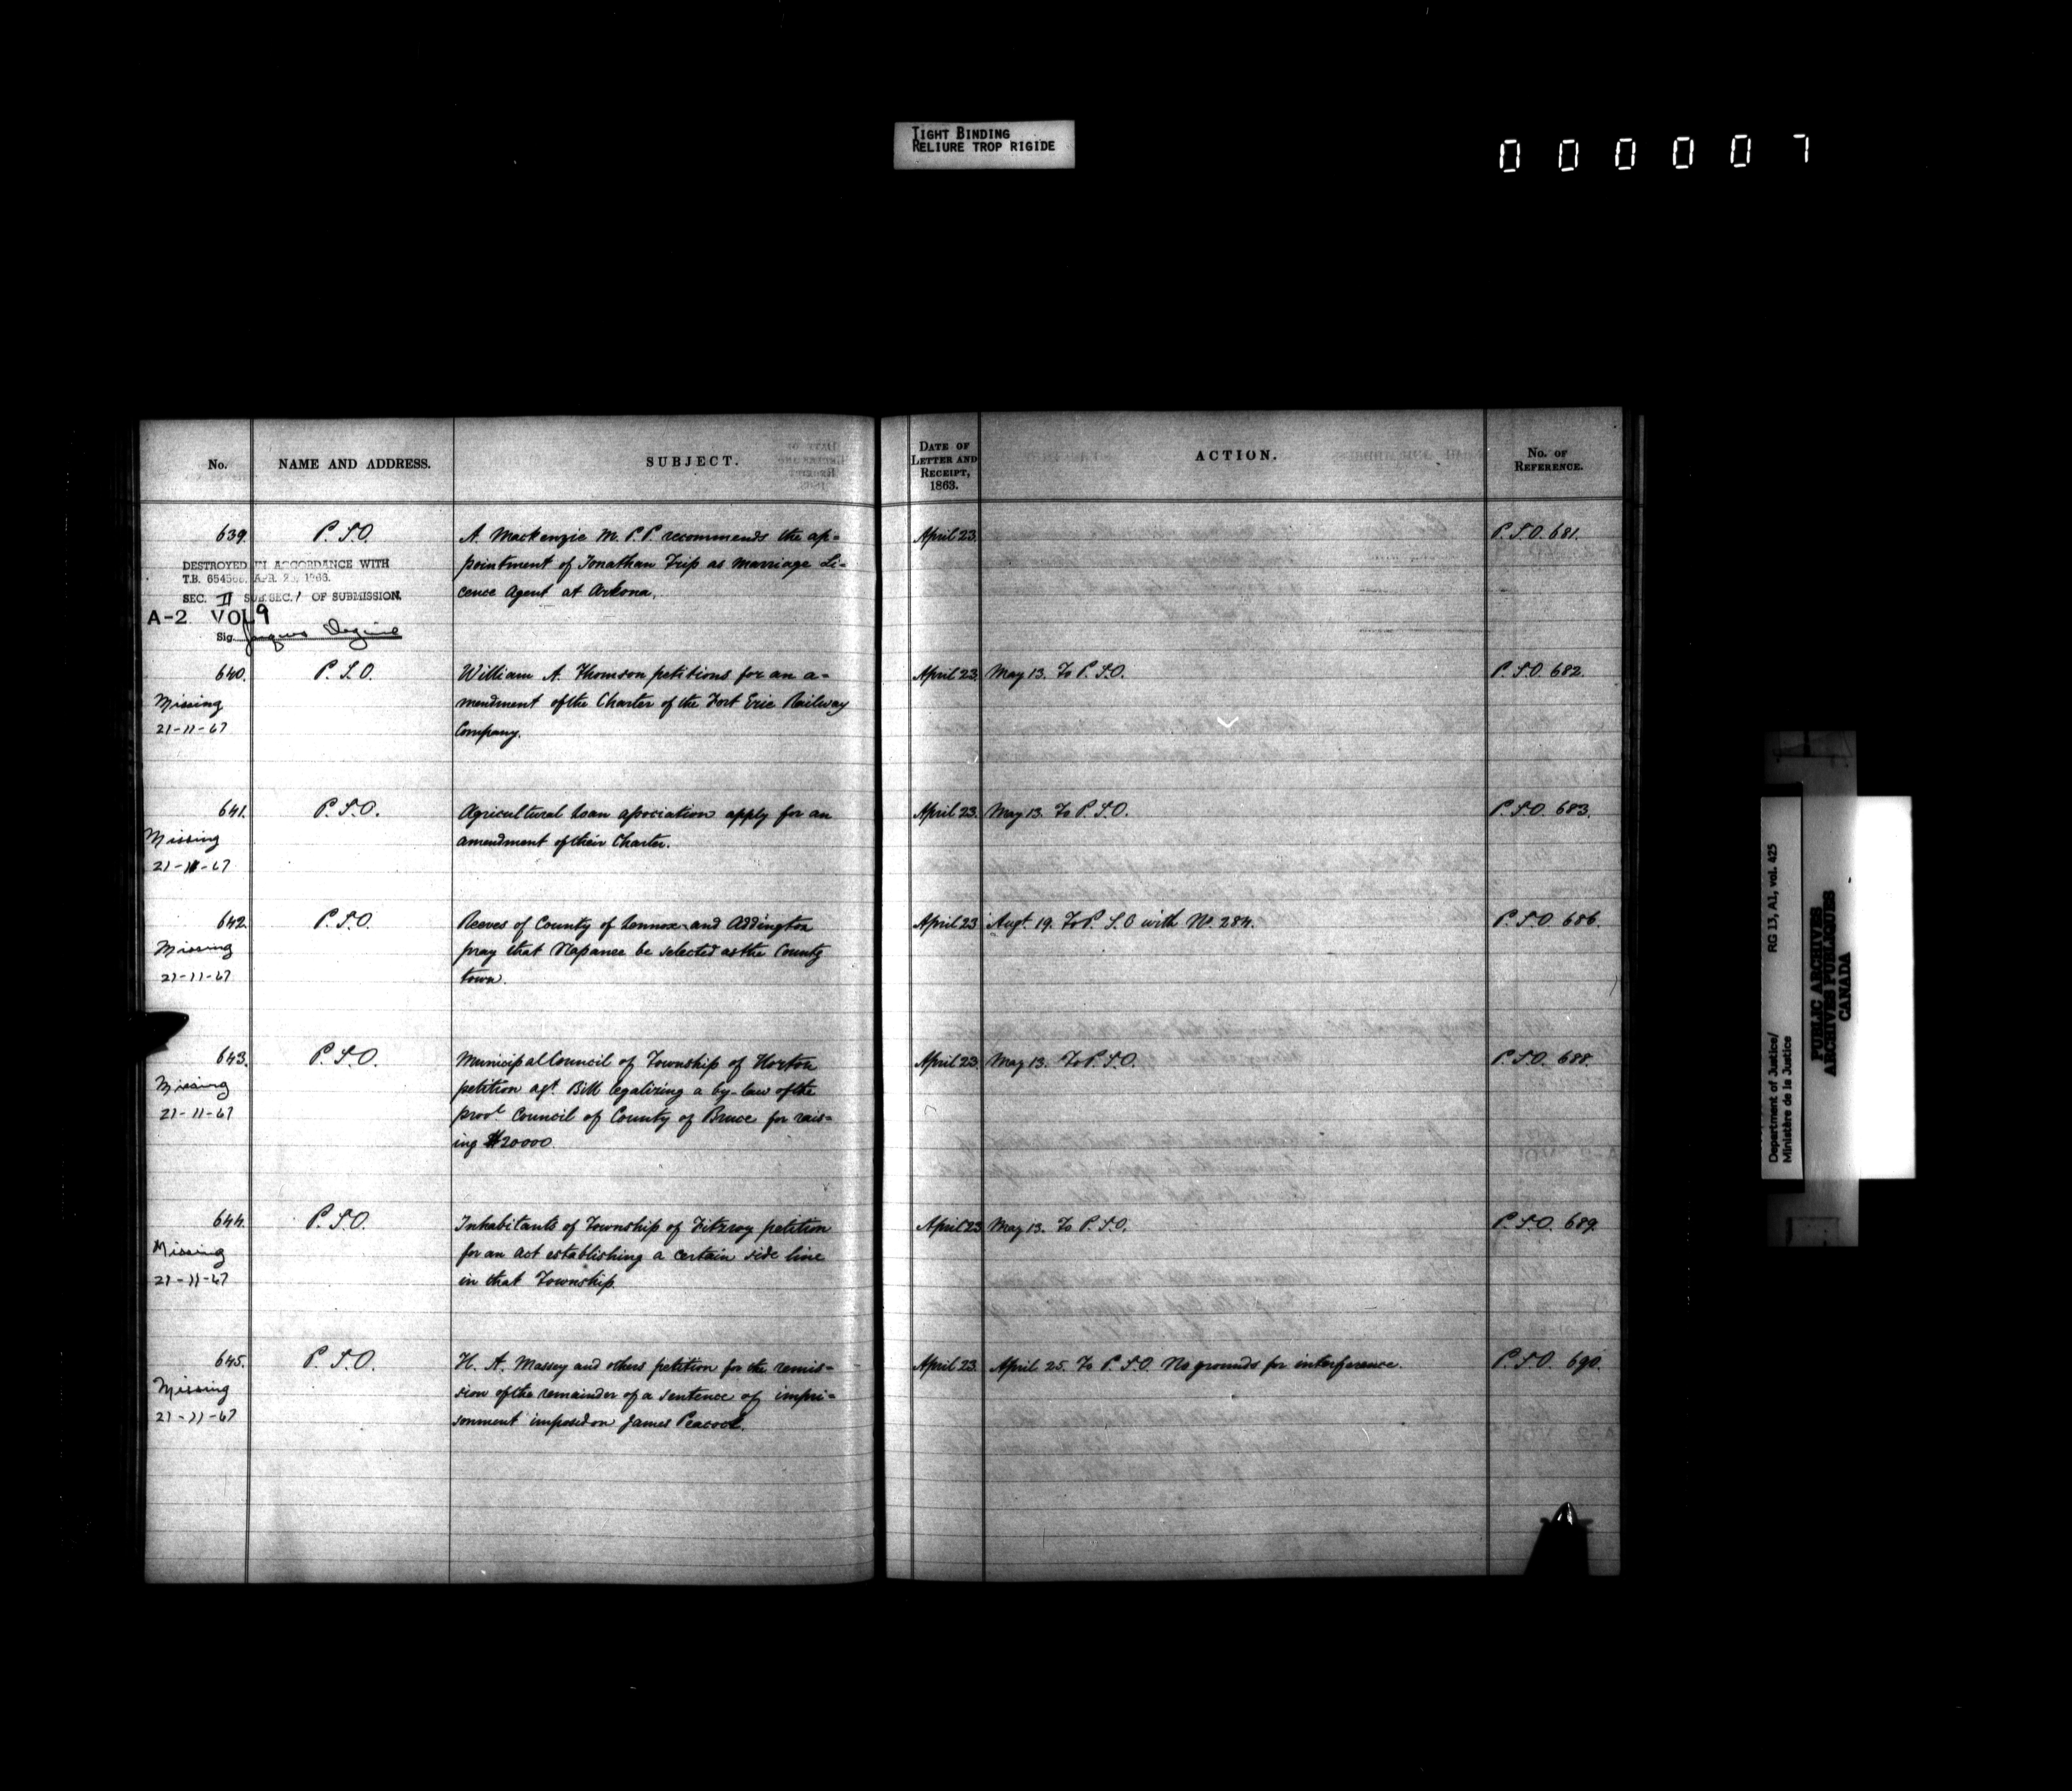 TIGHT BINDING
RELIURE TROP RIGIDE
0 0 0 0 0 7
No. NAME AND ADDRESS. SUBJECT. DATE OF LETTER AND RECEIPT, 1863. ACTION. No. OF REFERENCE.
639. P.S.O. A. Mackenzie M.P.P. recommends the ap= April 23. P.S.O. 681.
pointment of Jonathan Trip as Marriage Li-
cence Agent at Arkona.
DESTROYED IN ACCORDANCE WITH
T.B. 654566. APR. 25, 1966.
SEC. II SUB.SEC. 1 OF SUBMISSION.
A-2 VOL 9
Sig.
640. P.S.O. William A. Thomson petitions for an a= April 23. May 13. To P.S.O. P.S.O. 682.
Missing mendment of the Charter of the Fort Erie Railway
21-11-67 Company.
641. P.S.O. Agricultural Loan association apply for an April 23. May 13. To P.S.O. P.S.O. 683.
Missing amendment of their Charter.
21-11-67
642. P.S.O. Reeves of County of Lennox and Addington April 23 Augt. 19. To P.S.O with No 284. P.S.O. 686.
Missing pray that Napanee be selected as the County
21-11-67 town.
643. P.S.O. Municipal Council of Township of Horton April 23. May 13. To P.S.O. P.S.O. 688.
Missing petition agt. Bill legalizing a by-law of the
21-11-67 provl Council of County of Bruce for rais-
ing $20000.
644. P.S.O. Inhabitants of Township of Fitzroy petition April 23 May 13. To P.S.O. P.S.O. 689.
Missing for an act establishing a certain side line
21-11-67 in that Township.
645. P.S.O. H. A. Massey and others petition for the remis= April 23. April 25. To P.S.O. No grounds for interference. P.S.O. 690.
Missing sion of the remainder of a sentence of impri=
21-11-67 sonment imposed on James Peacock.
RG 13, A1, vol. 425
Department of Justice/
Ministère de la Justice
PUBLIC ARCHIVES
ARCHIVES PUBLIQUES
CANADA